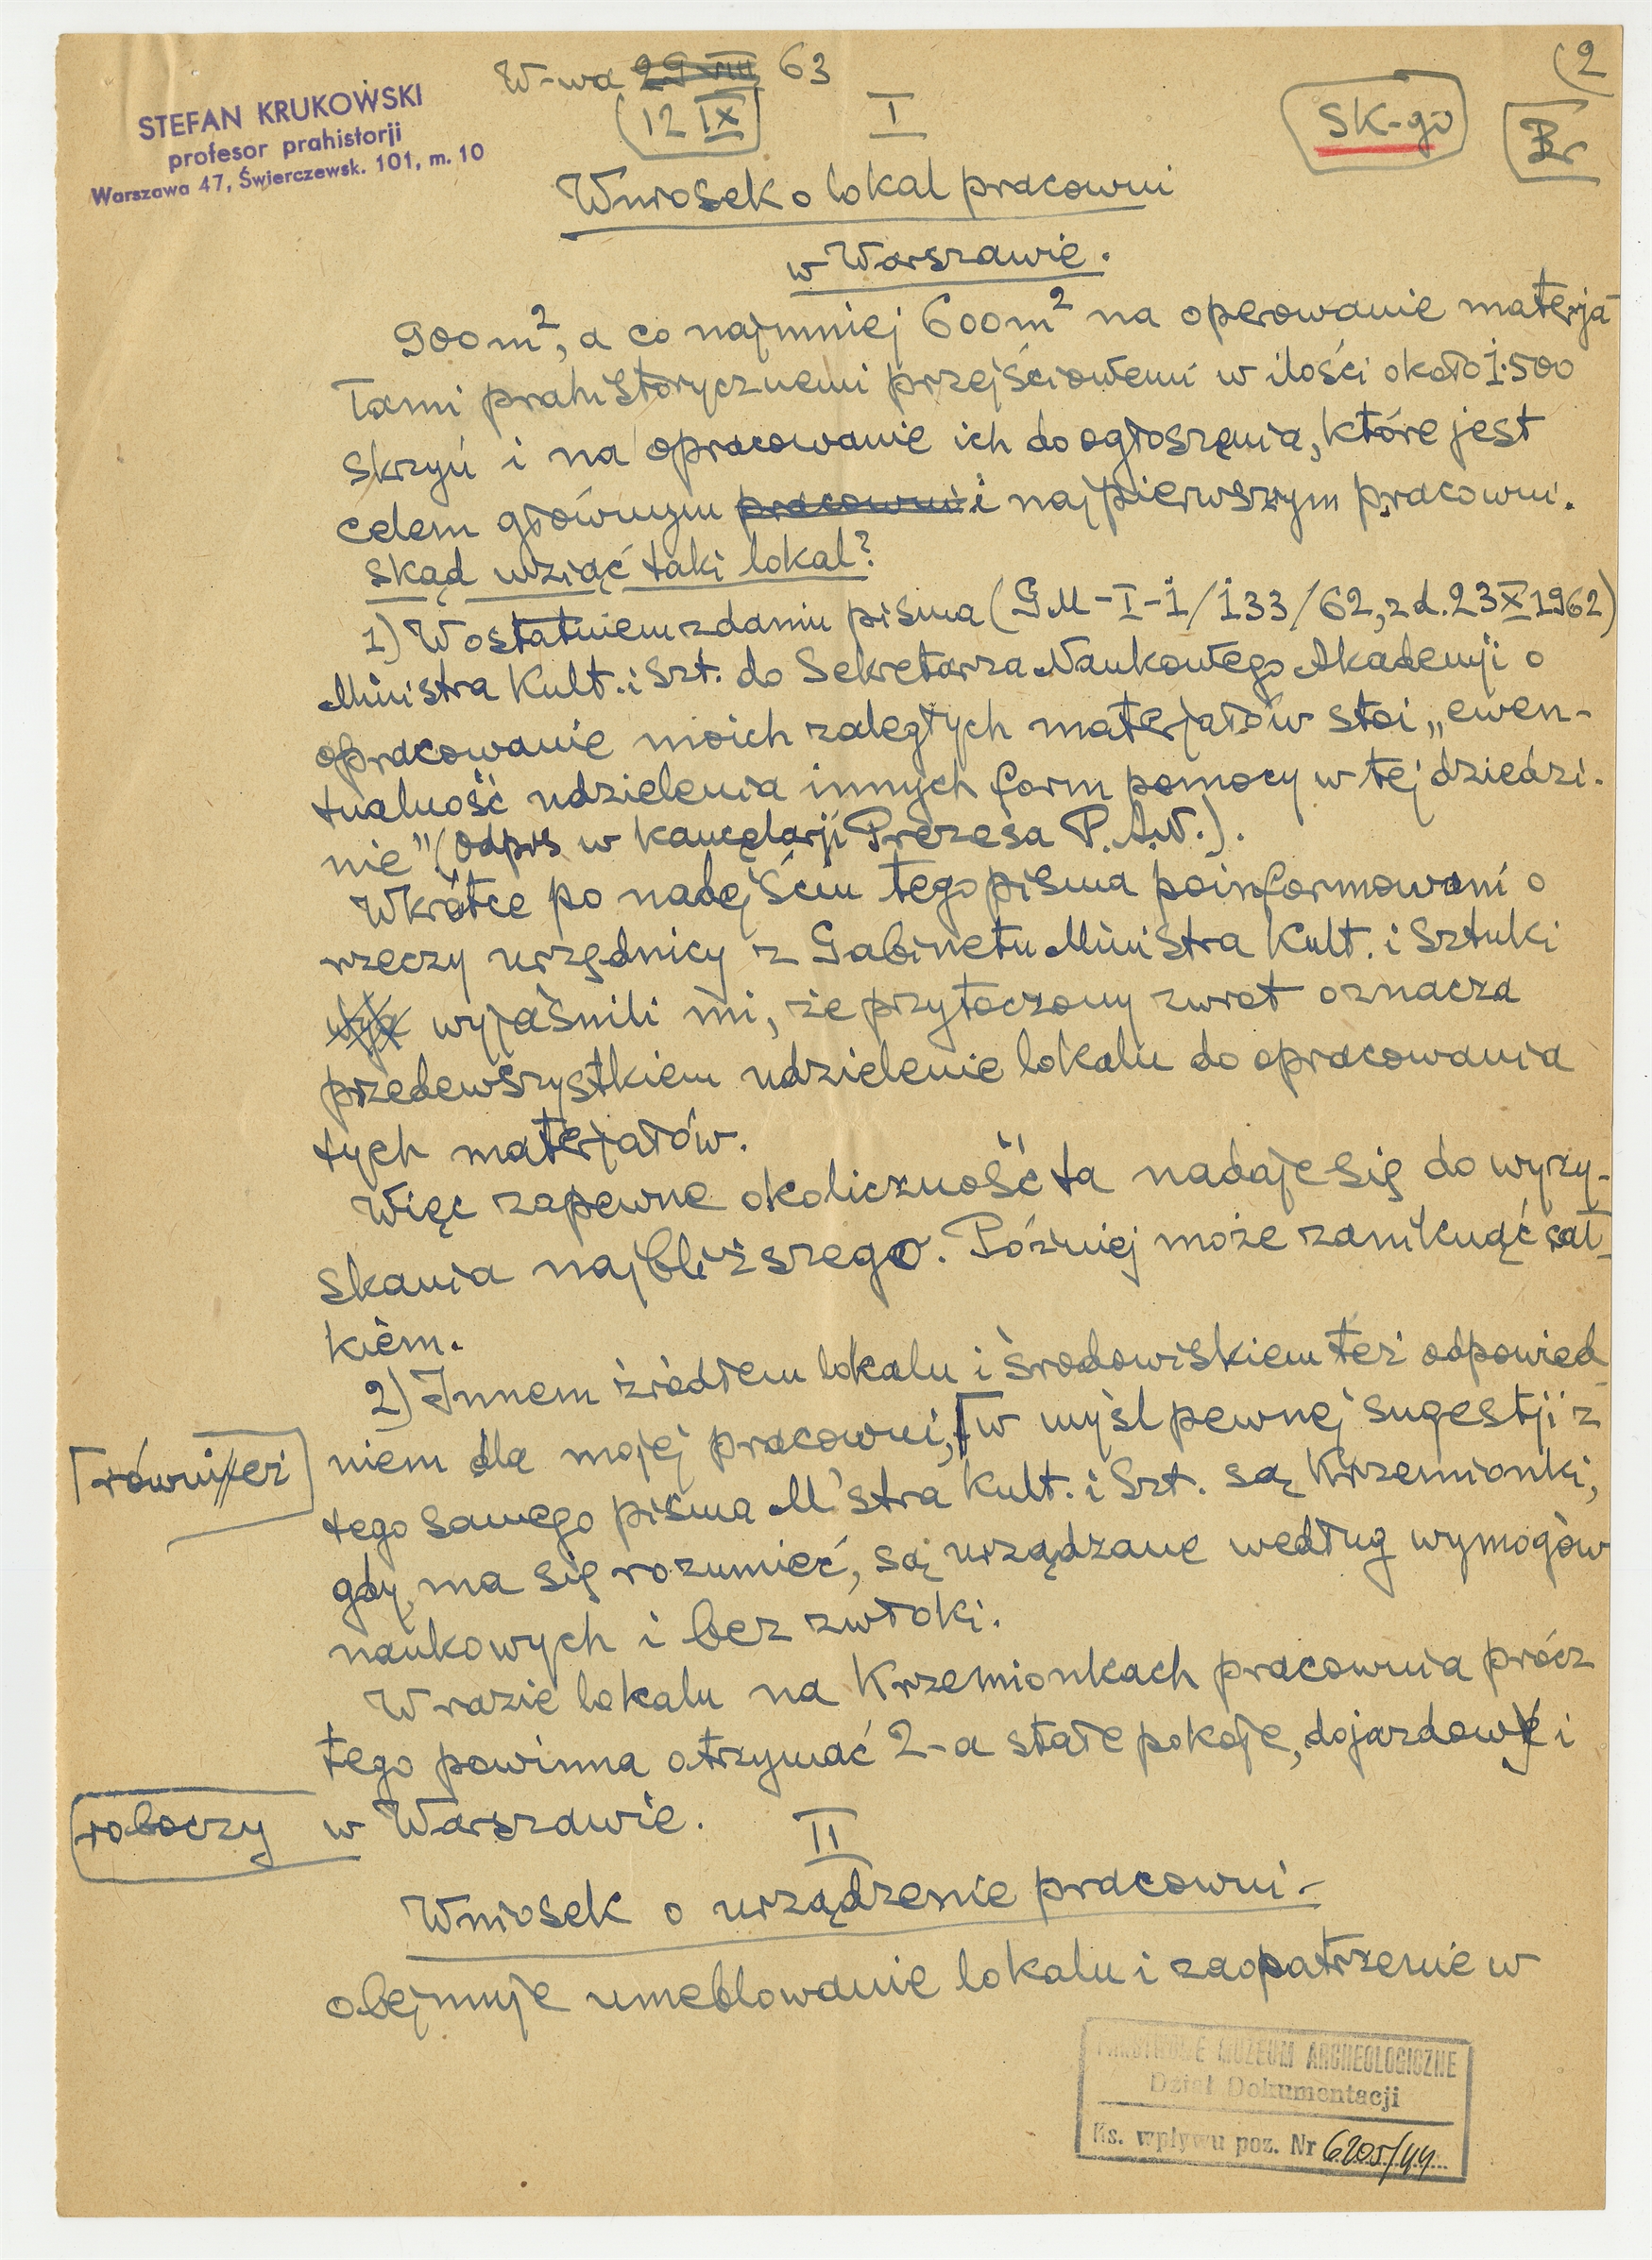 STEFAN KRUKOWSKI
profesor prahistorji
Warszawa 47, Świerczewsk. 101, m. 10
W-wa 29 VIII 63
(12 IX)
(2
SK-go
I
Wniosek o lokal pracowni
w Warszawie.
900 m², a co najmniej 600 m² na operowanie materja-
łami prahistorycznemi przejściowemi w ilości około 1.500
skrzyń i na opracowanie ich do ogłoszenia, które jest
celem głównym pracowni i najpierwszym pracowni.
skąd wziąć taki lokal?
1) W ostatniem zdaniu pisma (GM-I-1/133/62, z d. 23 X 1962)
Ministra Kult. i Szt. do Sekretarza Naukowego Akademji o
opracowanie moich zaległych materjałów stoi „ewen-
tualność udzielenia innych form pomocy w tej dziedzi-
nie" (odpis w kancelarji Prezesa P.A.N.).
Wkrótce po nadejściu tego pisma poinformowani o
rzeczy urzędnicy z Gabinetu Ministra Kult. i Sztuki
wyjaśnili mi, że przytoczony zwrot oznacza
przedewszystkiem udzielenie lokalu do opracowania
tych materjałów.
Więc zapewne okoliczność ta nadaje się do wyzy-
skania najbliższego. Później może zaniknąć cał-
kiem.
2) Innem źródłem lokalu i środowiskiem też odpowied-
niem dla mojej pracowni, ⌈w myśl pewnej sugestji z
⌈również
tego samego pisma M'stra Kult. i Szt. są Krzemionki,
gdy, ma się rozumieć, są urządzane według wymogów
naukowych i bez zwłoki.
W razie lokalu na Krzemionkach pracownia prócz
tego powinna otrzymać 2-a stałe pokoje, dojazdowy i
roboczy w Warszawie.
II
Wniosek o urządzenie pracowni -
obejmuje umeblowanie lokalu i zaopatrzenie w
PAŃSTWOWE MUZEUM ARCHEOLOGICZNE
Dział Dokumentacji
Ks. wpływu poz. Nr 6205/44